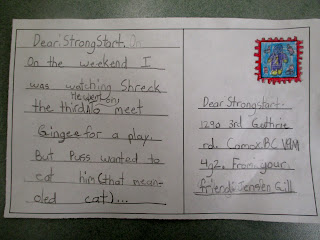 Dear StrongStart.
On the weekend I
was watching Shreck
the third
meet
Gingee for a play.
But Puss wanted to
eat him (that mean-
oled cat)...
Dear Strongstart.
1290 3rd Guthrie
rd. Comox BC V9M
4g2. From your
friend: Jensen Gill